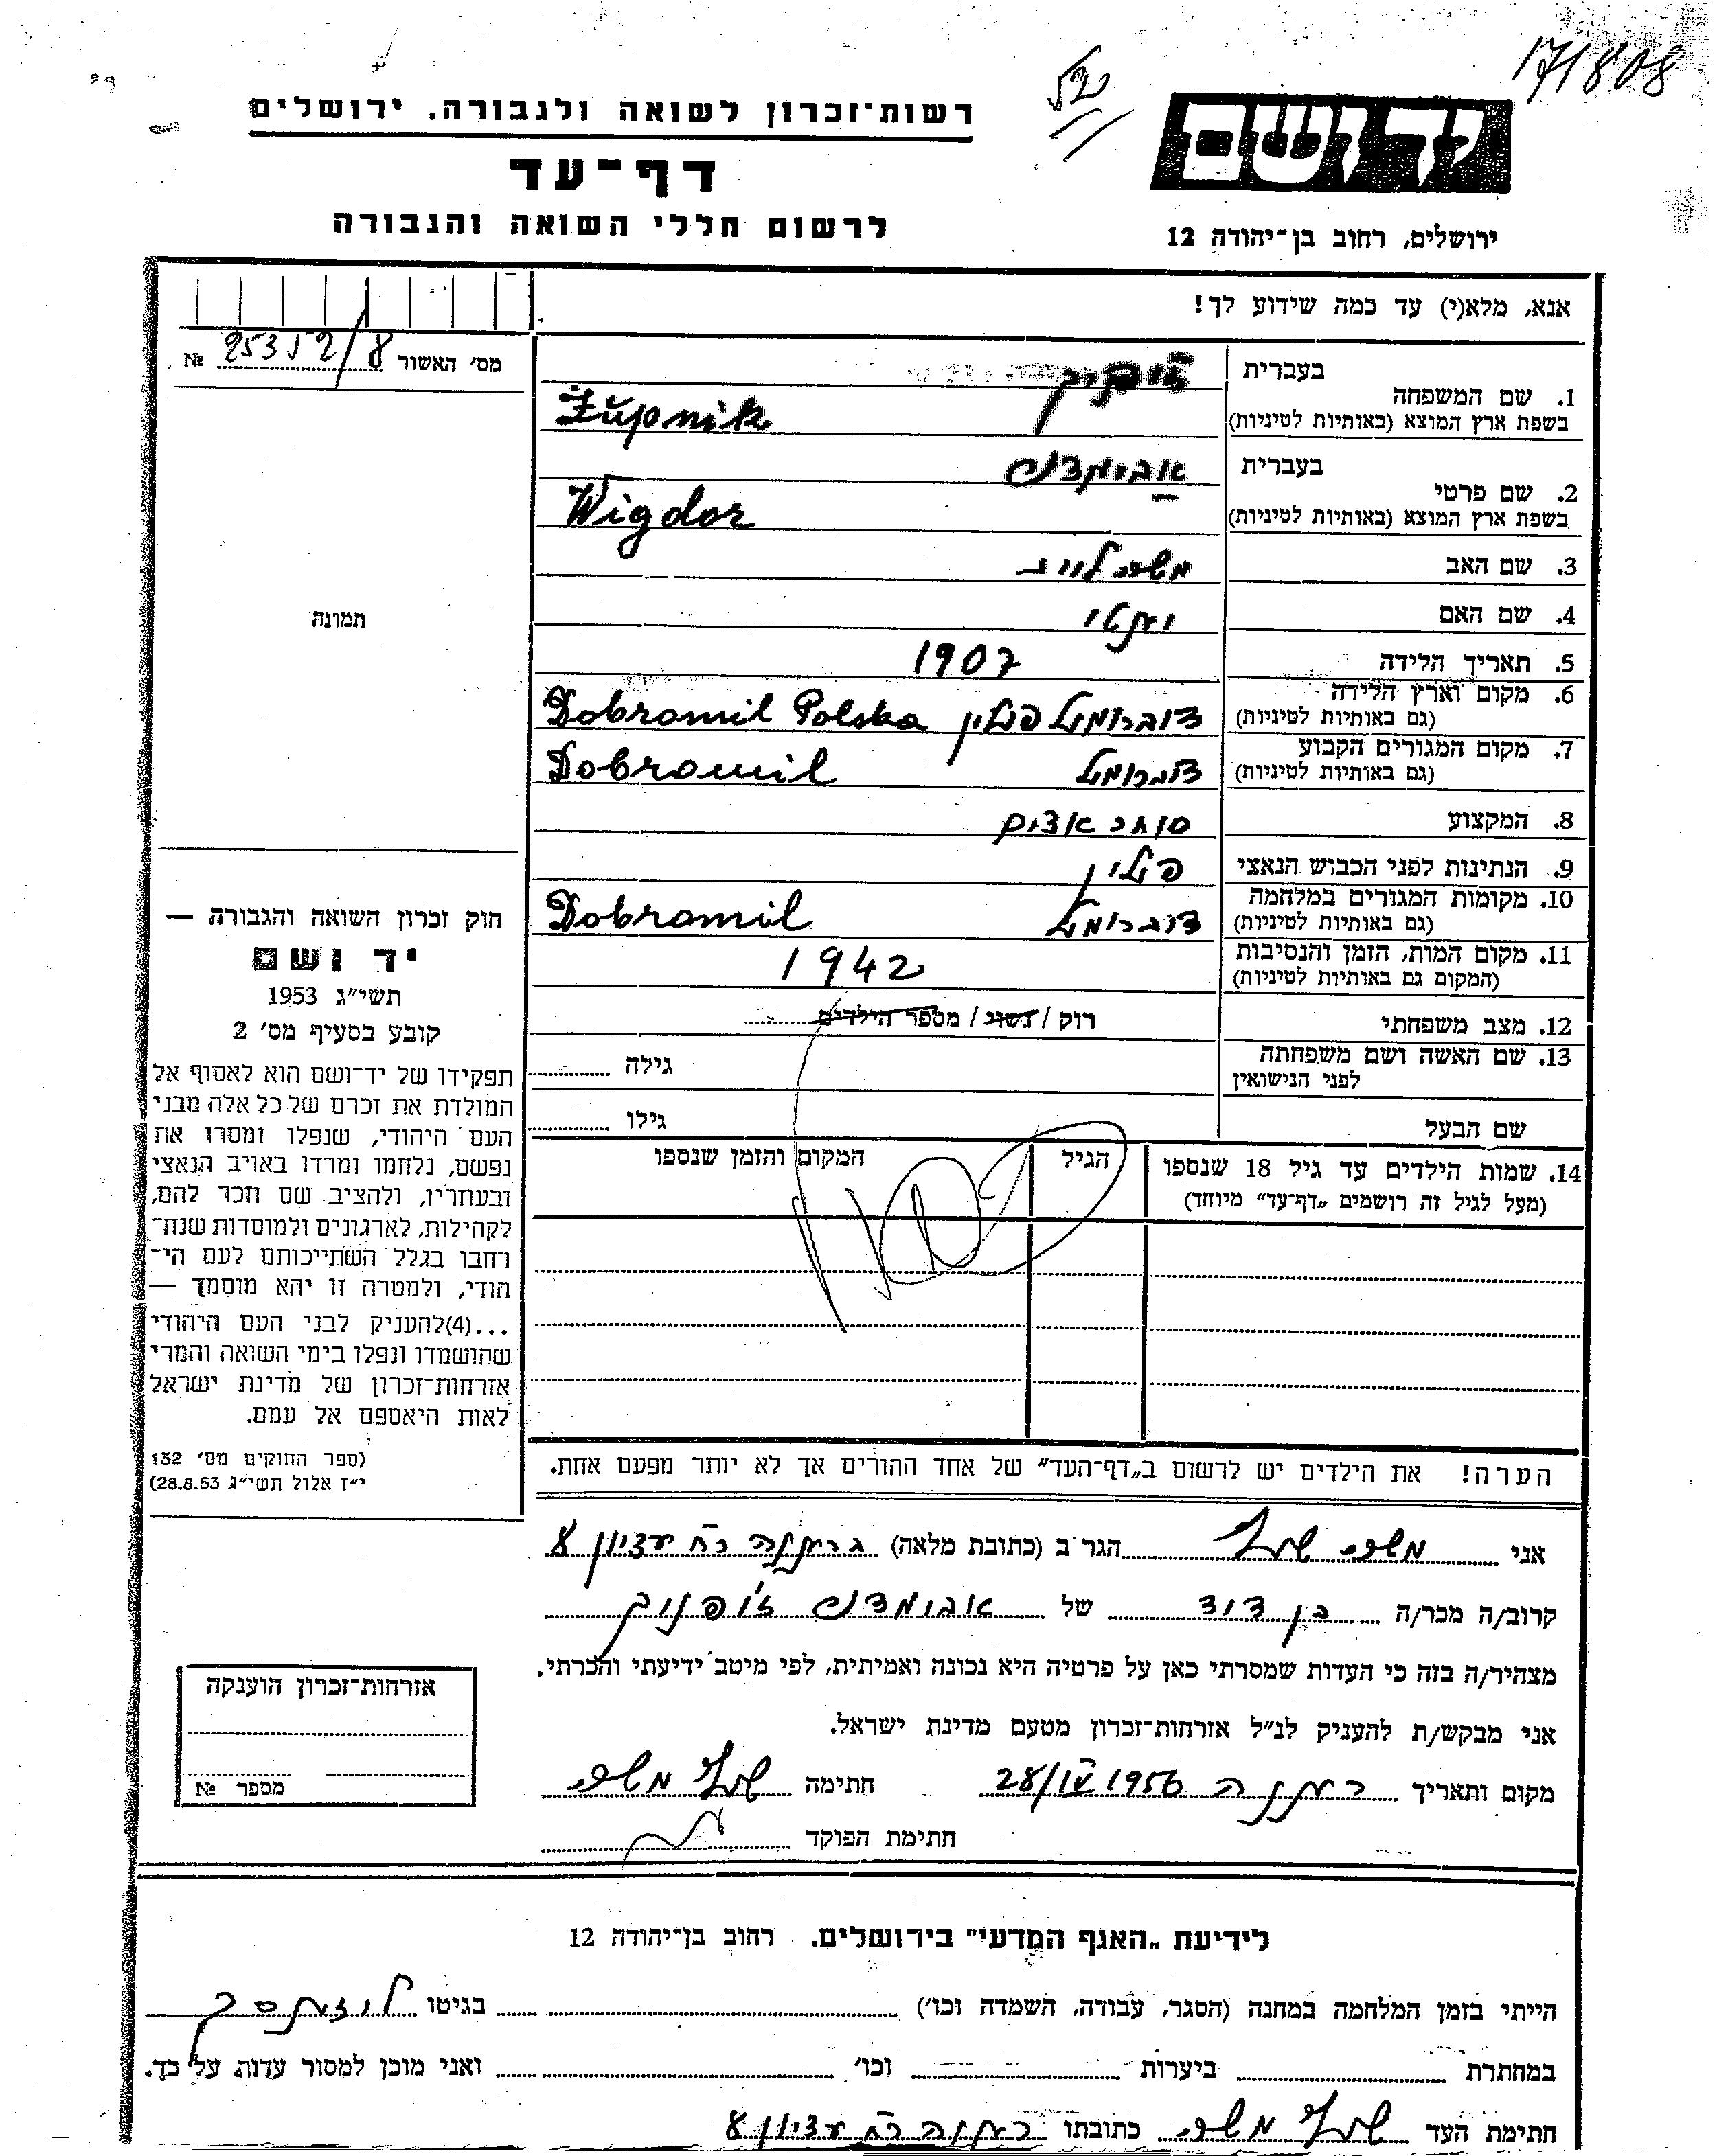 171808
52
ידושם
רשות־זכרון לשואה ולגבורה, ירושלים
דף־עד
לרשום חללי השואה והגבורה
ירושלים, רחוב בן־יהודה 12
אנא, מלא(י) עד כמה שידוע לך!
מס׳ האשור 8/25352 №
תמונה
חוק זכרון השואה והגבורה —
יד ושם
תשי״ג 1953
קובע בסעיף מס׳ 2
תפקידו של יד־ושם הוא לאסוף אל
המולדת את זכרם של כל אלה מבני
העם היהודי, שנפלו ומסרו את
נפשם, נלחמו ומרדו באויב הנאצי
ובעוזריו, ולהציב שם וזכר להם,
לקהילות, לארגונים ולמוסדות שנח־
רחבו בגלל השתייכותם לעם הי־
הודי, ולמטרה זו יהא מוסמך —
...(4)להעניק לבני העם היהודי
שהושמדו ונפלו בימי השואה והמרי
אזרחות־זכרון של מדינת ישראל
לאות היאספם אל עמם.
(ספר החוקים מס׳ 132
י״ז אלול תשי״ג 28.8.53)
בעברית
1. שם המשפחה
בשפת ארץ המוצא (באותיות לטיניות) Żupnik
בעברית
2. שם פרטי
בשפת ארץ המוצא (באותיות לטיניות) Wigdor
3. שם האב משה
4. שם האם
5. תאריך הלידה 1907
6. מקום וארץ הלידה דוברומיל פולין Dobromil Polska
(גם באותיות לטיניות)
7. מקום המגורים הקבוע דוברומיל Dobromil
(גם באותיות לטיניות)
8. המקצוע סוחר עצים
9. הנתינות לפני הכבוש הנאצי פולין
10. מקומות המגורים במלחמה דוברומיל Dobromil
(גם באותיות לטיניות)
11. מקום המות, הזמן והנסיבות 1942
(המקום גם באותיות לטיניות)
12. מצב משפחתי רוק / נשוי / מספר הילדים
13. שם האשה ושם משפחתה גילה
לפני הנישואין
שם הבעל גילו
14. שמות הילדים עד גיל 18 שנספו הגיל המקום והזמן שנספו
(מעל לגיל זה רושמים „דף־עד״ מיוחד)
הערה! את הילדים יש לרשום ב„דף־העד״ של אחד ההורים אך לא יותר מפעם אחת.
אני משה הגר ב (כתובת מלאה) ברעננה רח׳
קרוב/ה מכר/ה בן דוד של ז׳ופניק
מצהיר/ה בזה כי העדות שמסרתי כאן על פרטיה היא נכונה ואמיתית, לפי מיטב ידיעתי והכרתי.
אני מבקש/ת להעניק לנ״ל אזרחות־זכרון מטעם מדינת ישראל.
מקום ותאריך רעננה 1956 חתימה משה
חתימת הפוקד
אזרחות־זכרון הוענקה
מספר №
לידיעת „האגף המדעי״ בירושלים. רחוב בן־יהודה 12
הייתי בזמן המלחמה במחנה (הסגר, עבודה, השמדה וכו׳) בגיטו
במחתרת ביערות וכו׳ ואני מוכן למסור עדות על כך.
חתימת העד משה כתובתו רעננה רח׳